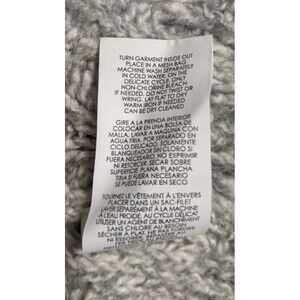 TURN GARMENT INSIDE OUT
PLACE IN A MESH BAG
MACHINE WASH SEPARATELY
IN COLD WATER, ON THE
DELICATE CYCLE. ONLY
NON-CHLORINE BLEACH
IF NEEDED. DO NOT TWIST OR
WRING. LAY FLAT TO DRY
WARM IRON IF NEEDED
CAN BE DRY CLEANED
GIRE A LA PRENDA INTERIOR
COLOCAR EN UNA BOLSA DE
MALLA, LAVAR A MAQUINA CON
AGUA FRIA, POR SEPARADO EN
CICLO DELICADO. SOLAMENTE
BLANQUEADOR SIN CLORO SI
FUERA NECESARIO. NO EXPRIMIR
NI RETORCER. SECAR SOBRE
SUPERFICIE PLANA PLANCHA
TIBIA SI FUERA NECESARIO
SE PUEDE LAVAR EN SECO
TOURNEZ LE VÊTEMENT À L'ENVERS
PLACER DANS UN SAC-FILET
LAVER SÉPARÉMENT À LA MACHINE
À L'EAU FROIDE, AU CYCLE DÉLICAT
UTILISER UN AGENT DE BLANCHIMENT
SANS CHLORE AU BESOIN
SÉCHER À PLAT. NE PAS TORDRE
NI ESSORER.